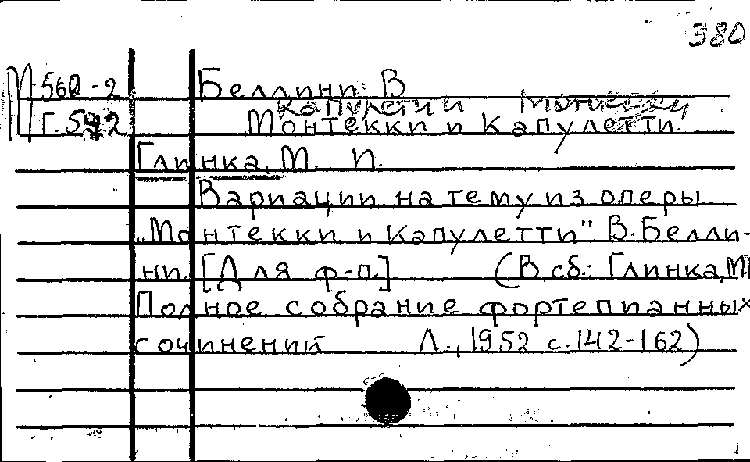 380
М 560-2 Беллини В
Капулетти и Монтекки
Г.592 Монтекки и Капулетти.
Глинка, М. И.
Вариации на тему из оперы
„Монтекки и Капулетти" В. Белли-
ни. [Для ф-п.] (В сб.: Глинка, М
Полное собрание фортепианных
сочинений Л., 1952 с. 142-162)